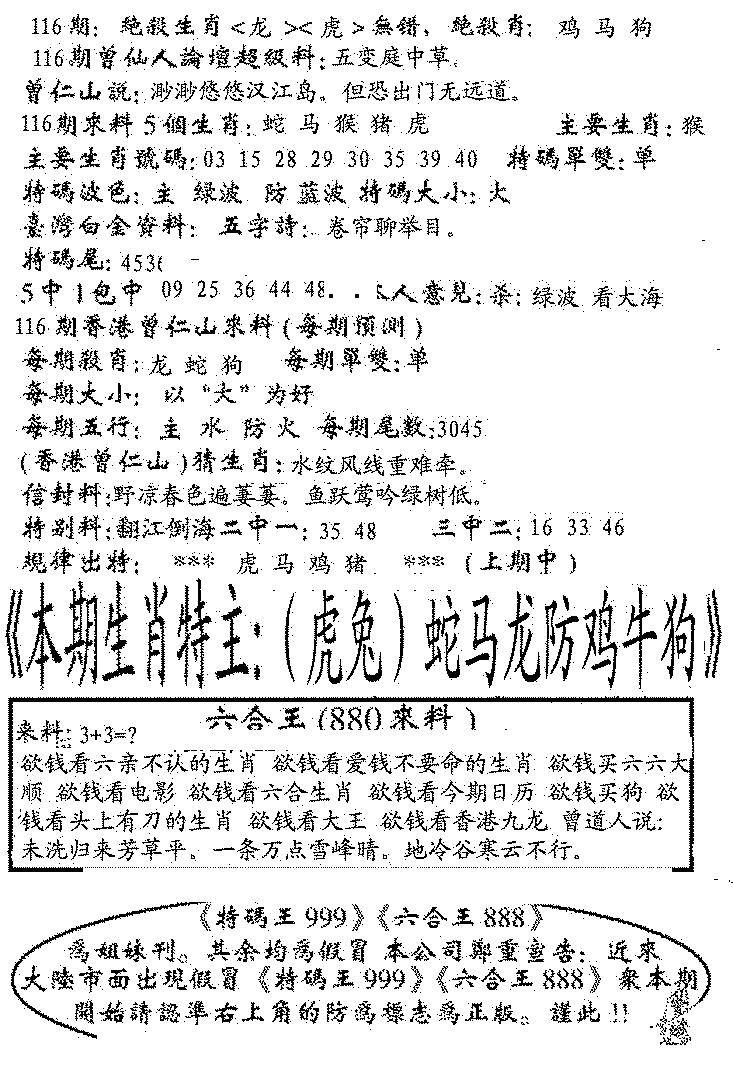 116期：絶殺生肖<龙><虎>無錯，絶殺肖：鸡 马 狗
116期曾仙人論壇超級料：五变庭中草。
曾仁山説：渺渺悠悠汉江岛。但恐出门无远道。
116期來料5個生肖：蛇 马 猴 猪 虎 主要生肖：猴
主要生肖號碼：03 15 28 29 30 35 39 40 特碼單雙：单
特碼波色：主 绿波 防 蓝波 特碼大小：大
臺灣白金資料：五字詩：卷帘聊举目。
特碼尾：4536
5中1包中 09 25 36 44 48 人意見：杀：绿波 看大海
116期香港曾仁山來料(每期預測)
每期殺肖：龙 蛇 狗 每期單雙：单
每期大小：以“大”为好
每期五行：主 水 防 火 每期尾數：3045
(香港曾仁山)猜生肖：水纹风线重难牵。
信封料：野凉春色遍萋萋。鱼跃莺吟绿树低。
特别料：翻江倒海二中一：35 48 三中二：16 33 46
規律出特：*** 虎 马 鸡 猪 *** (上期中)
《本期生肖特主：(虎兔)蛇马龙防鸡牛狗》
六合王(880來料)
来料：3+3=?
欲钱看六亲不认的生肖 欲钱看爱钱不要命的生肖 欲钱买六六大
顺 欲钱看电影 欲钱看六合生肖 欲钱看今期日历 欲钱买狗 欲
钱看头上有刀的生肖 欲钱看大王 欲钱看香港九龙 曾道人说：
未洗归来芳草平。一条万点雪峰晴。地冷谷寒云不行。
《特碼王999》《六合王888》
爲姐妹刊。其余均爲假冒 本公司鄭重宣告：近來
大陸市面出現假冒《特碼王999》《六合王888》衆本期
開始請認準右上角的防爲標志爲正版。謹此!!